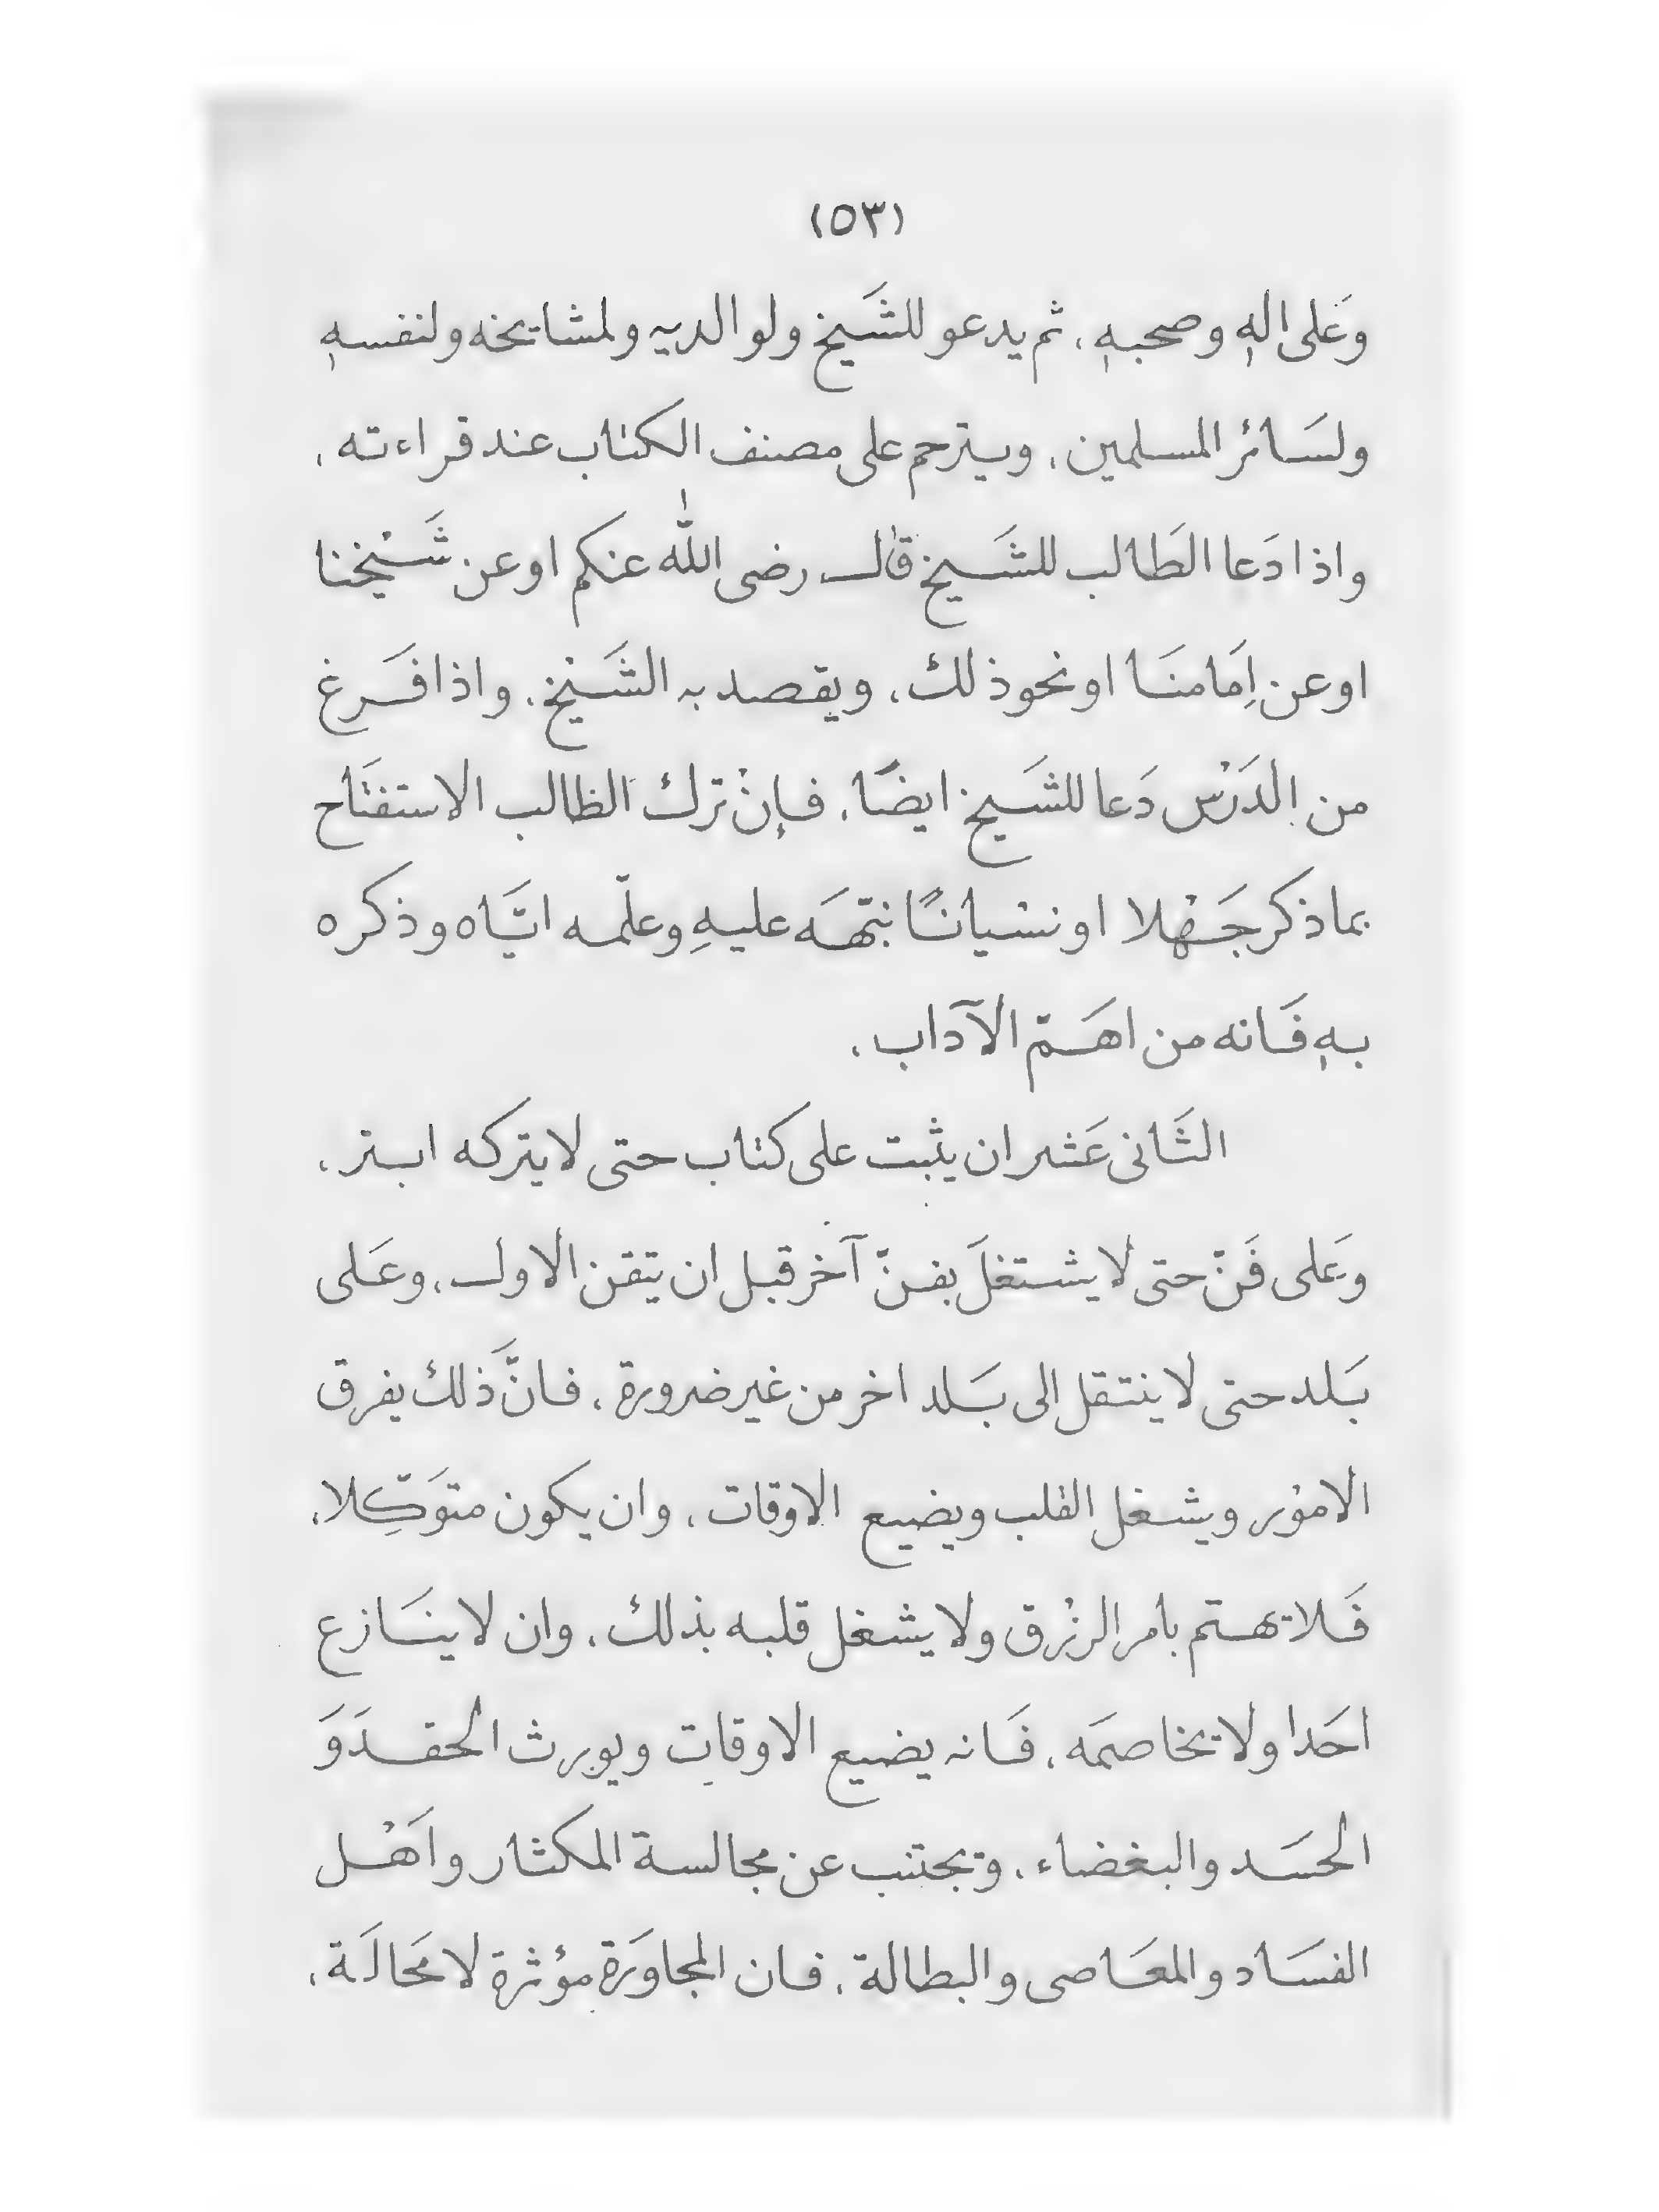 (٥٣)
وَعَلى اٰلهٖ وصحبهٖ، ثم يدعو للشَيخ ولوالديه ولمشايخه ولنفسهٖ
ولسَائر المسلمين، ويترحم على مصنف الكتاب عند قراءته،
واذا دَعا الطَالب للشَيخ قال رضى اللّٰه عنكم او عن شَيْخنا
او عن اِمَامنَا او نحو ذلك، ويقصد به الشَيْخ، واذا فَرغ
من الدَرْس دَعا للشَيخ ايضًا، فإنْ ترك الطالب الاستفتَاح
بما ذكر جَهْلا او نسْيانًا نبّهَه عليهِ وعلّمه ايَّاه وذكره
بهٖ فَانه من اهَمّ الآداب،
الثَانى عَشر ان يثبت على كتاب حتى لا يتركه ابتر،
وعَلى فَنّ حتى لا يشتغلَ بفنّ آخر قبل ان يتقن الاول، وعَلى
بَلد حتى لا ينتقل الى بَلد اخر من غير ضرورة، فانَّ ذلك يفرق
الامُور ويشغل القلب ويضيع الاوقات، وان يكون متوَكِّلا،
فَلا تهتم بامر الرزْق ولا يشغل قلبه بذلك، وان لا ينَازع
احَدا ولا يخاصمَه، فَانه يضيع الاوقات ويورث الحقدَ وَ
الحسَد والبغضاء، ويجتنب عن مجالسة المكثار واَهْل
الفسَاد والمعَاصى والبطالة، فان المجاوَرة مؤثرة لا محَالَة،